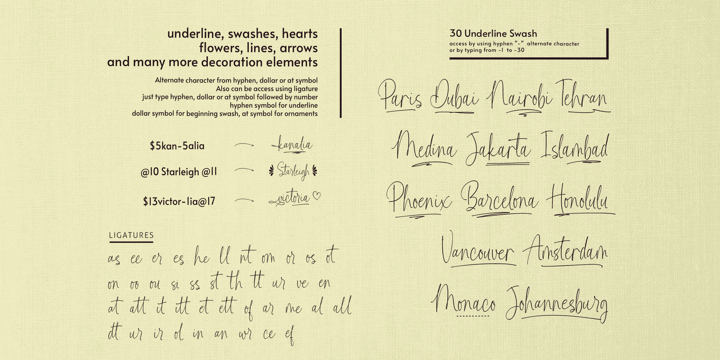 underline, swashes, hearts
flowers, lines, arrows
and many more decoration elements
Alternate character from hyphen, dollar or at symbol
Also can be access using ligature
just type hyphen, dollar or at symbol followed by number
hyphen symbol for underline
dollar symbol for beginning swash, at symbol for ornaments
$5kan-5alia kanalia
@10 Starleigh @11 Starleigh
$13victor-1ia@17 victoria
LIGATURES
as ee er es he ll nt om or os ot
on oo ou si ss st th tt ur ve en
at att it itt et ett of ar me al all
dt ur ir ol in an wr ce ef
30 Underline Swash
access by using hyphen "-" alternate character
or by typing from -1 to -30
Paris Dubai Nairobi Tehran
Medina Jakarta Islambad
Phoenix Barcelona Honolulu
Vancouver Amsterdam
Monaco Johannesburg